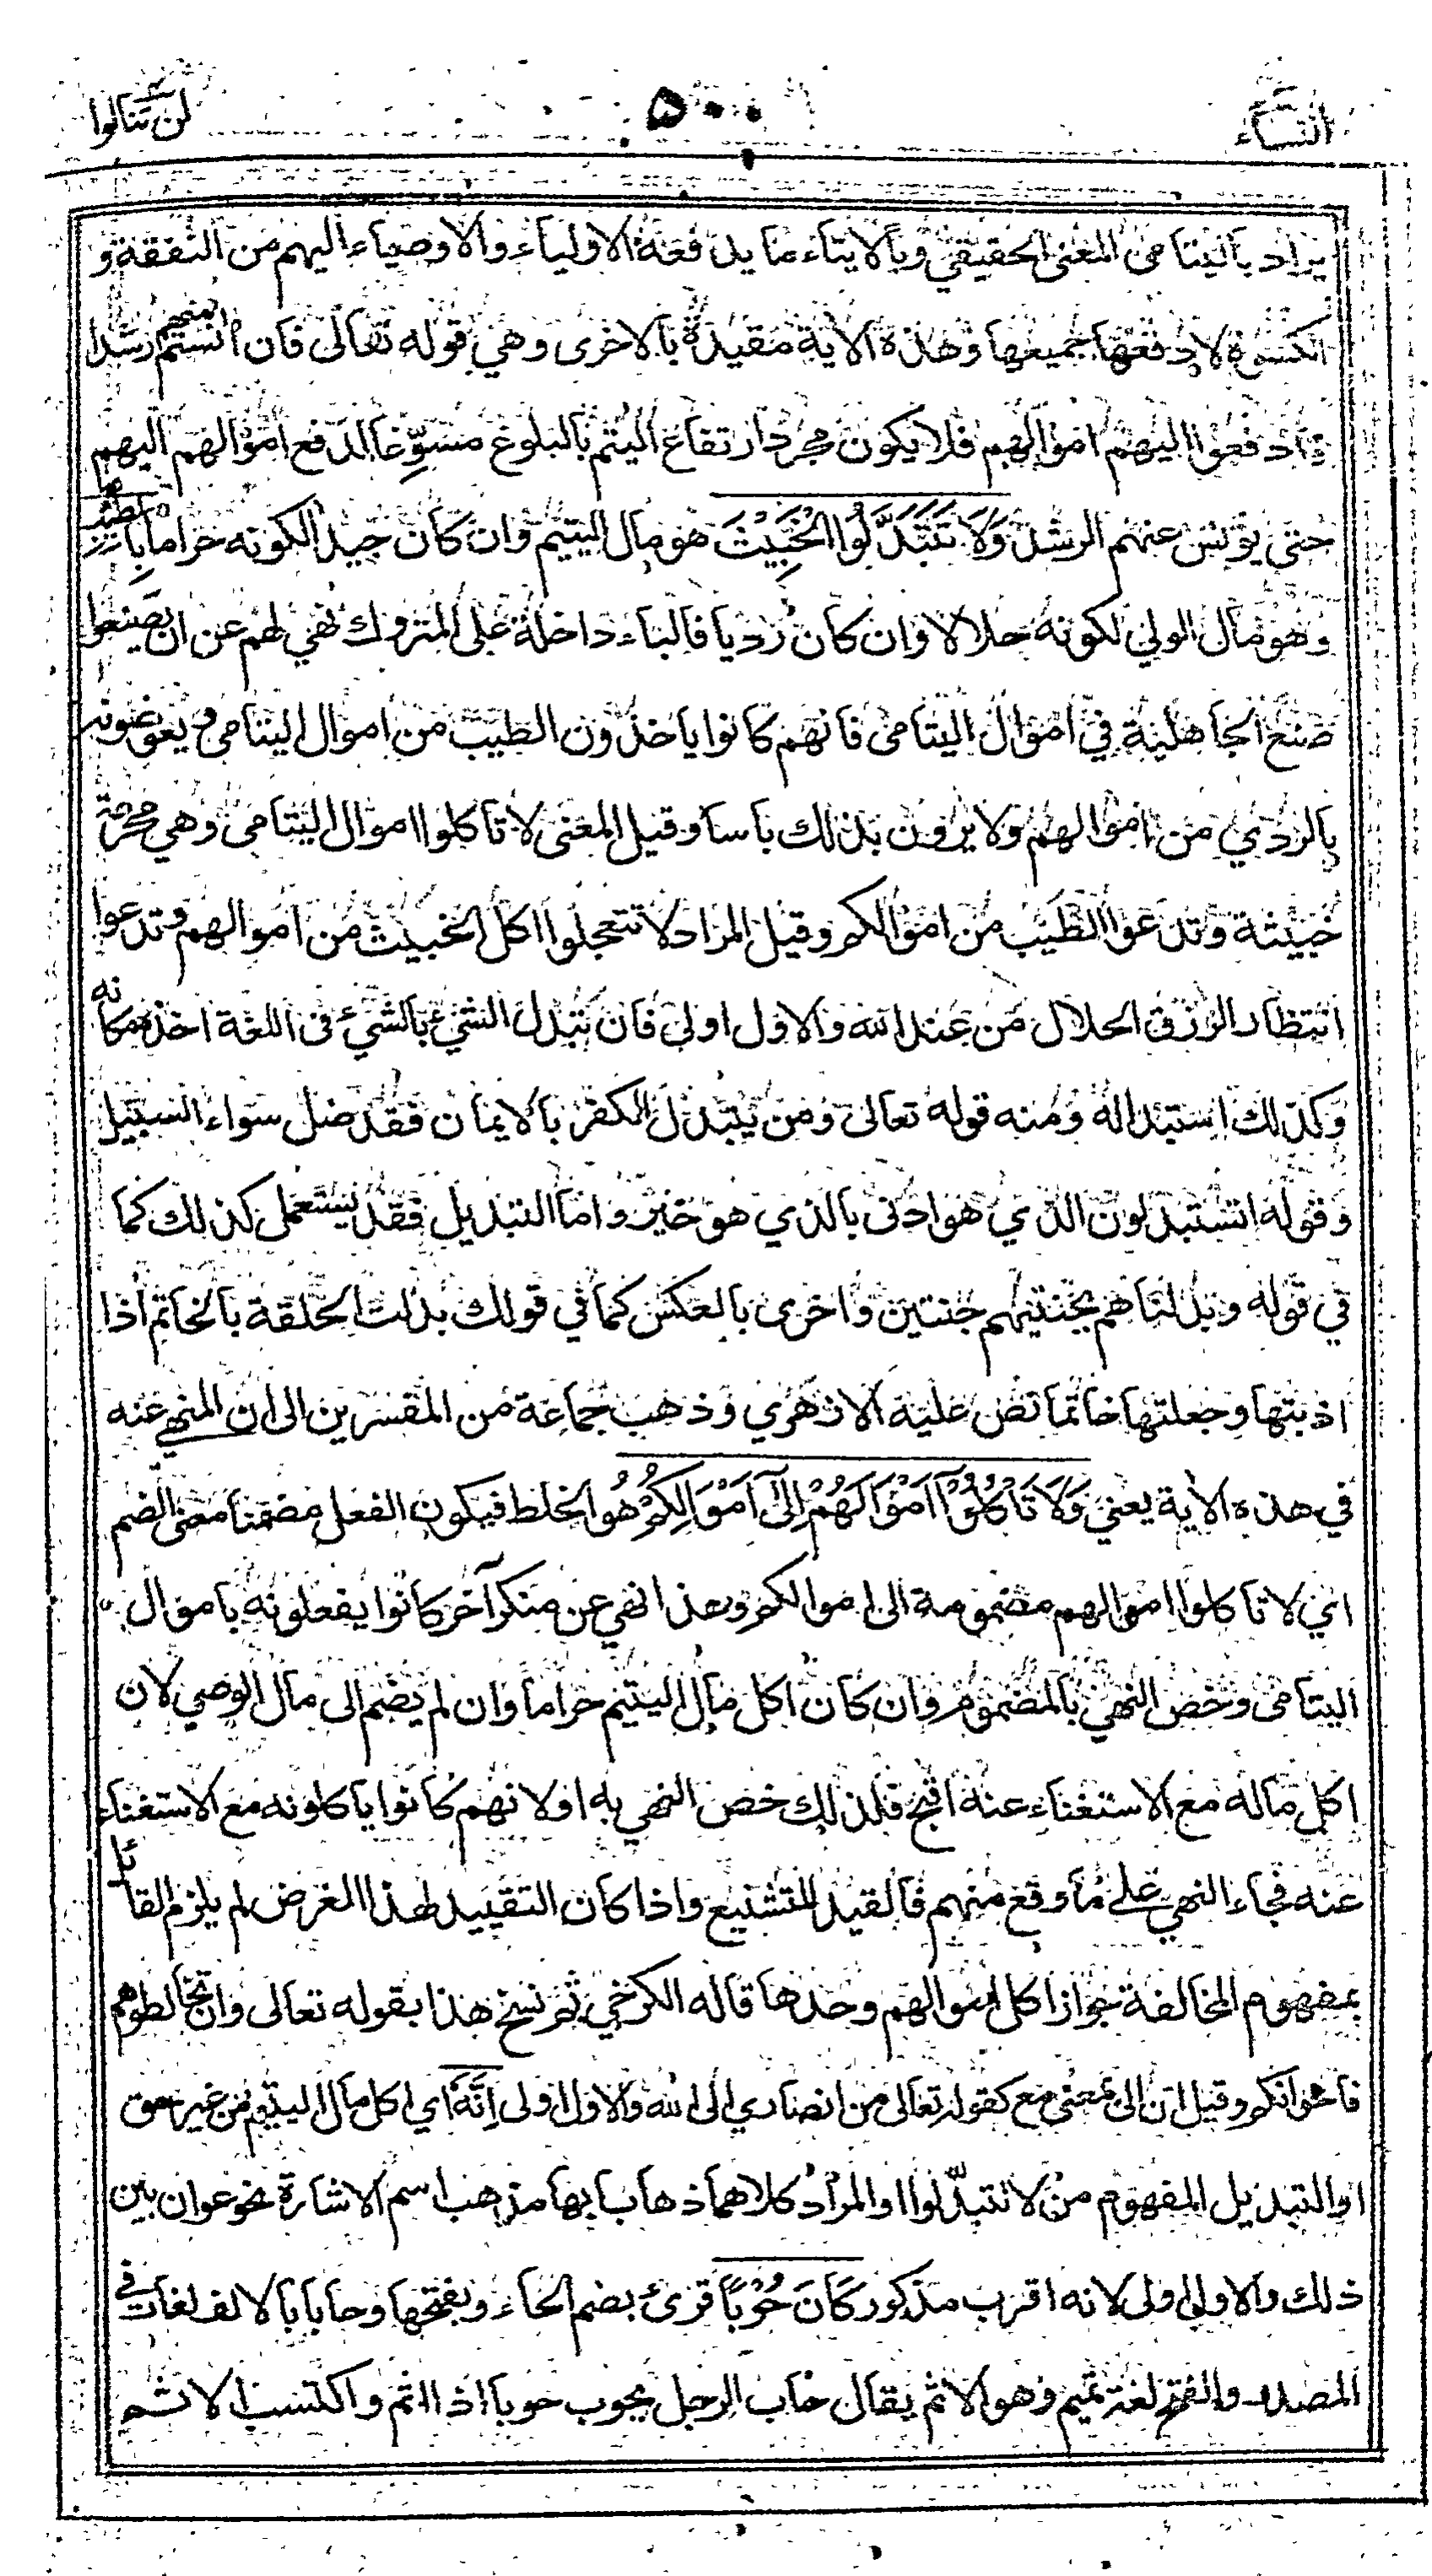 النساء
٥٠٠
لن تنالوا
يراد باليتامى المعنى الحقيقي وبالايتاء ما يدفعه الاولياء والاوصياء اليهم من النفقة و
الكسوة لا دفعها جميعها وهذه الاية مقيدة بالاخرى وهي قوله تعالى فان انستم منهم رشدا
فادفعوا اليهم اموالهم فلا يكون مجرد ارتفاع اليتم بالبلوغ مسوّغا لدفع اموالهم اليهم
حتى يؤنس عنهم الرشد وَلَا تَتَبَدَّلُوا الْخَبِيْثَ هو مال اليتيم وان كان جيدا لكونه حراما بِالطَّيِّبِ
وهو مال الولي لكونه حلالا وان كان رديا فالباء داخلة على المتروك نهي لهم عن ان يصنعوا
صنع الجاهلية في اموال اليتامى فانهم كانوا ياخذون الطيب من اموال اليتامى ويعوضونه
بالردي من اموالهم ولا يرون بذلك بأسا وقيل المعنى لا تأكلوا اموال اليتامى وهي محرمة
خبيثة وتدعوا الطيب من اموالكم وقيل المراد لا تتعجلوا اكل الخبيث من اموالهم وتدعوا
انتظار الرزق الحلال من عند الله والاول اولى فان تبدل الشيء بالشيء في اللغة اخذه مكانه
وكذلك استبداله ومنه قوله تعالى ومن يتبدل الكفر بالايمان فقد ضل سواء السبيل
وقوله اتستبدلون الذي هو ادنى بالذي هو خير واما التبديل فقد يستعمل كذلك كما
في قوله وبدلناهم بجنتيهم جنتين واخرى بالعكس كما في قولك بدلت الحلقة بالخاتم اذا
اذبتها وجعلتها خاتما نص عليه الازهري وذهب جماعة من المفسرين الى ان المنهي عنه
في هذه الاية يعني وَلَا تَأْكُلُوْٓا اَمْوَالَهُمْ اِلٰٓى اَمْوَالِكُمْ هُو الخلط فيكون الفعل مضمنا معنى الضم
اي لا تاكلوا اموالهم مضمومة الى اموالكم وهذا نهي عن منكر آخر كانوا يفعلونه باموال
اليتامى وخص النهي بالمضموم وان كان اكل مال اليتيم حراما وان لم يضم الى مال الوصي لان
اكل ماله مع الاستغناء عنه اقبح فلذلك خص النهي به او لانهم كانوا ياكلونه مع الاستغناء
عنه فجاء النهي على ما وقع منهم فالقيد للتشنيع واذا كان التقييد لهذا الغرض لم يلزم القائل
بمفهوم المخالفة جواز اكل اموالهم وحدها قاله الكرخي ثم نسخ هذا بقوله تعالى وان تخالطوهم
فاخوانكم وقيل ان الى بمعنى مع كقوله تعالى من انصاري الى الله والاول اولى اِنَّهٗ اي اكل مال اليتيم من غير حق
او التبديل المفهوم من لا تتبدّلوا او المراد كلاهما ذهابا بها مذهب اسم الاشارة نحو عوان بين
ذلك والاولى اولى لانه اقرب مذكور كَانَ حُوْبًا قرئ بضم الحاء وبفتحها وحابا بالالف لغات في
المصدر والفتح لغة تميم وهو الاثم يقال حاب الرجل يحوب حوبا اذا اثم واكتسب الاثم